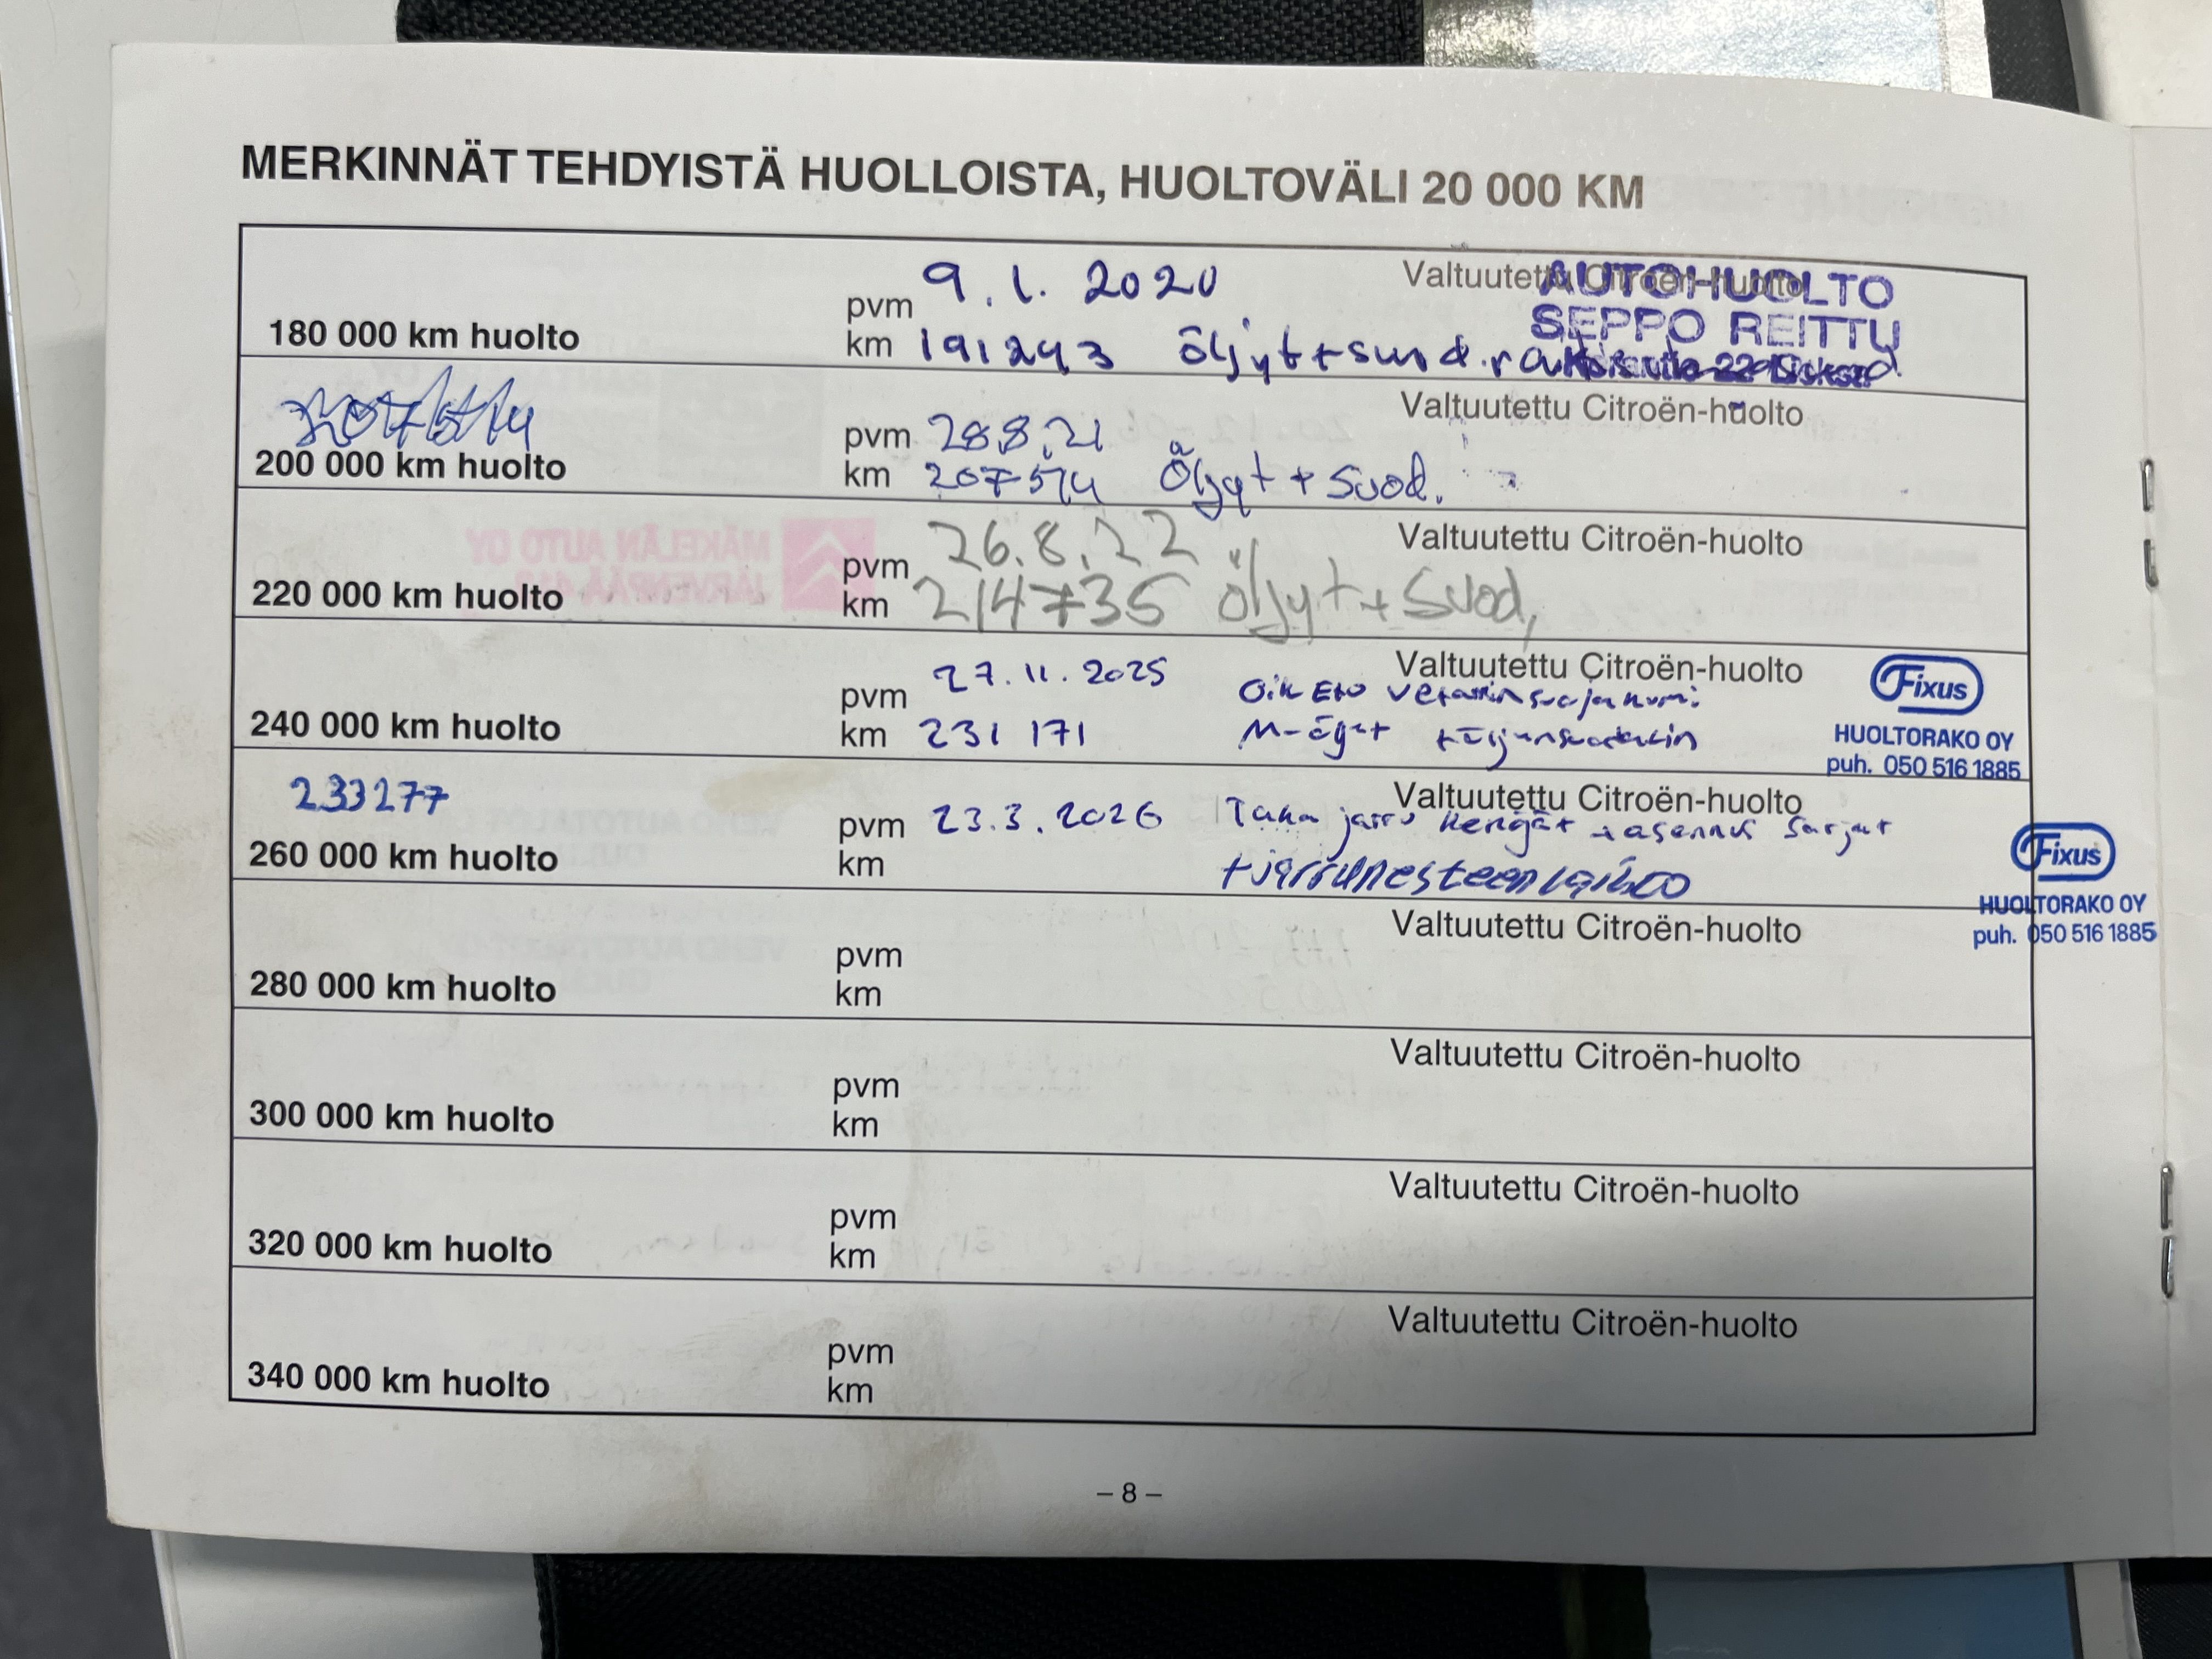 MERKINNÄT TEHDYISTÄ HUOLLOISTA, HUOLTOVÄLI 20 000 KM
180 000 km huolto
pvm 9.1.2020
km 191243 Öljyt + suod.
Valtuutettu Citroën-huolto
AUTOHUOLTO
SEPPO REITTU
200 000 km huolto
pvm 28.8.21
km 207574 Öljyt + suod.
Valtuutettu Citroën-huolto
220 000 km huolto
pvm 26.8.22
km 214735 Öljyt + Suod,
Valtuutettu Citroën-huolto
240 000 km huolto
pvm 27.11.2025
km 231 171
Valtuutettu Citroën-huolto
Oik Etu
Fixus
HUOLTORAKO OY
puh. 050 516 1885
233277
260 000 km huolto
pvm 23.3.2026
km
Valtuutettu Citroën-huolto
Taka jarru kengät + asennus sarjat
+ jarrunesteen vaihto
Fixus
HUOLTORAKO OY
puh. 050 516 1885
280 000 km huolto
pvm
km
Valtuutettu Citroën-huolto
300 000 km huolto
pvm
km
Valtuutettu Citroën-huolto
320 000 km huolto
pvm
km
Valtuutettu Citroën-huolto
340 000 km huolto
pvm
km
Valtuutettu Citroën-huolto
– 8 –